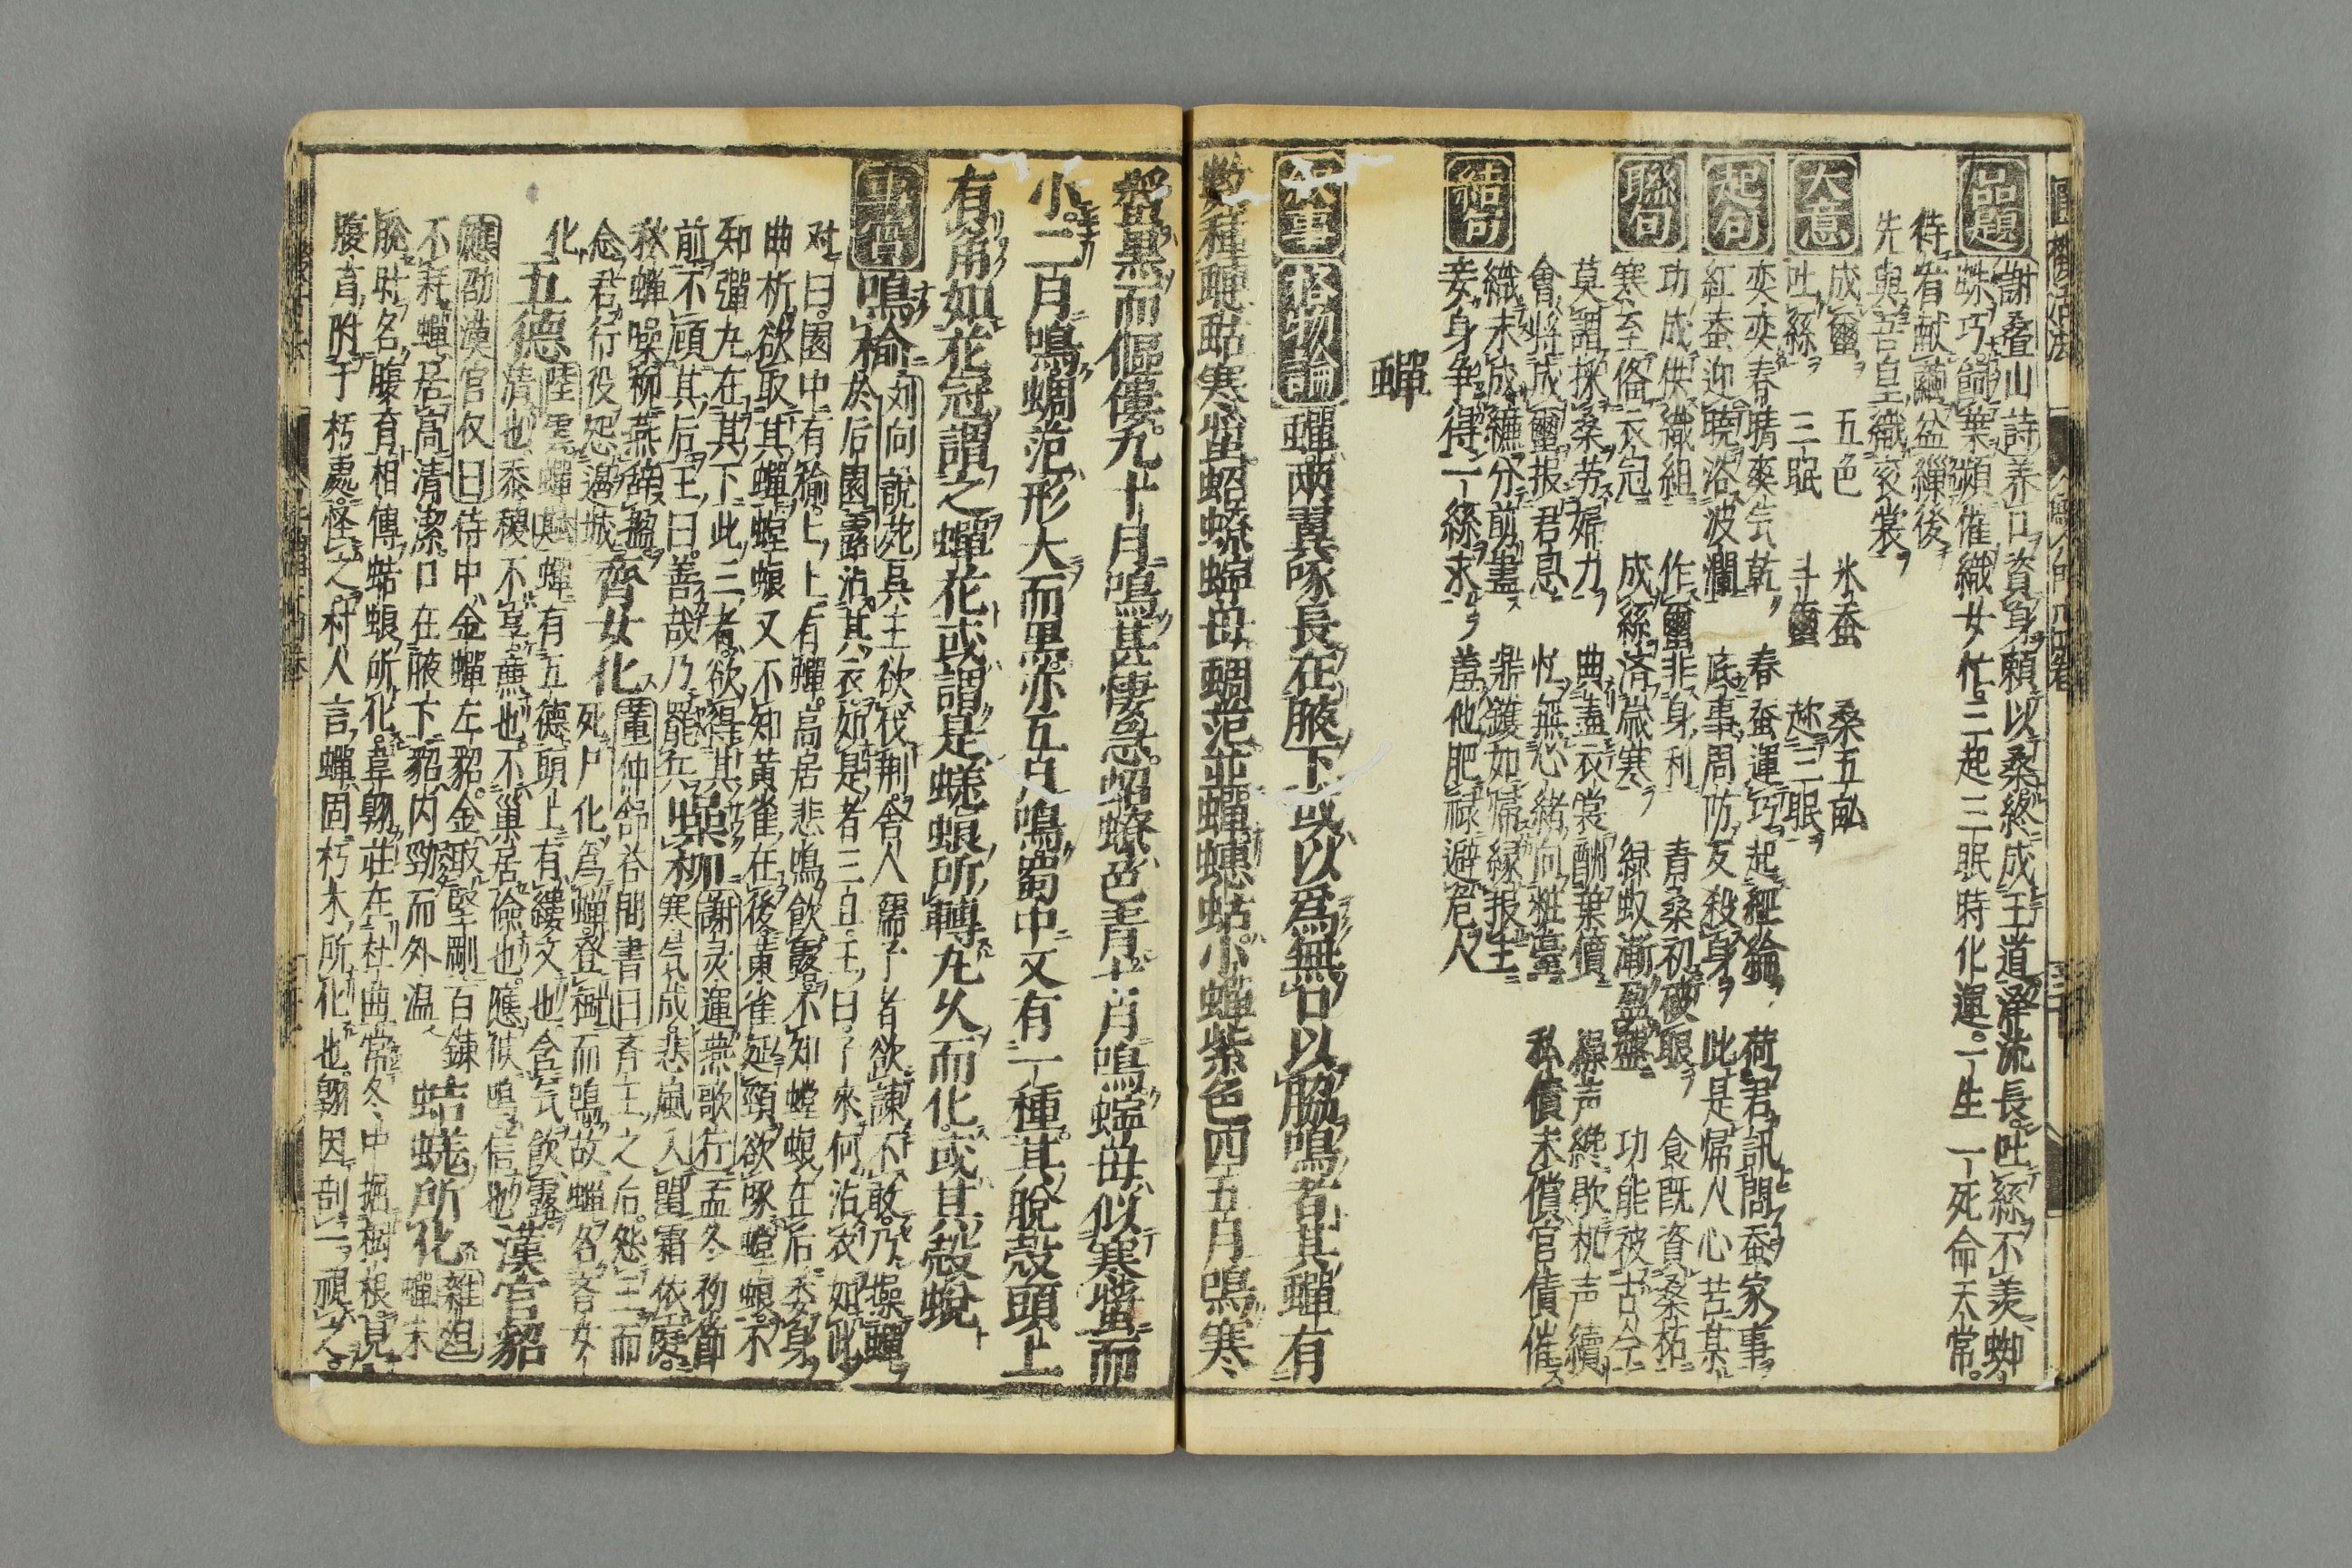 品題 謝疊山詩養口資身頼以桑終成王道澤流長吐絲不羨蜘
蛛巧飼葉頻催織女忙三起三眠時化運一生一死命天常
待看献繭盆繰後
先與吾皇織衮裳
大意 成璽 五色 氷蚕 桑五畆
吐絲 三眠 斗璽 三眠
起句 奕奕春晴爽气乾 春蚕運巧起經綸 荷君訊問蚕家事
紅蚕迎曉浴波瀾 底事周防反殺身 此是帰人心苦某
聯句 功成供織組 作璽非身利 青桑初破眼 食既資桑柘
寒至俻衣冠 成絲済歳寒 緑蚁漸盈 功能被古今
莫謂採桑労婦力 曲盡衣裳酬葉價 繰声纔歇机声續
會將成璽报君恩 忙無心緒向粧臺 私債未償官債催
結句 織未成縑分剪盡 鼎鑊如帰縁报主
妾身争得一絲来 羞他肥禄避危人
蟬
叙事 格物論 蟬兩翼啄長在腋下或以爲無口以脇鳴者其蟬有
數種蜓蛄寒螿蛁蟟蜺母蜩范茈蟬蟪蛄小蟬紫色四五月鳴寒
螿黒而傴僂九十月鳴甚悽急蛁蟟色青七八月鳴蜺母似寒螿而
小二月鳴蜩范形大而黒亦五月鳴蜀中又有一種其脫殼頭上
有角如花冠謂之蟬花或謂是蜣蜋所轉丸久而化或其殼蛻
事實 鳴榆 刘向說苑呉王欲伐荆舍人孺子者欲諫不敢乃操蟬
於后園露沾其衣如是者三旦王曰子來何沾衣如此
对曰園中有榆上有蟬高居悲鳴飲露不知螳蜋在后委身
曲枡欲取其蟬螳蜋又不知黄雀在後黄雀延頸欲啄螳蜋不
知彈丸在其下此三者欲得其
前不頋其后王曰善哉乃罷兵 噪柳 謝灵運燕歌行孟冬初節
寒气成悲風入閨霜依庭
秋蟬噪柳燕辞楹
念君行役怨邉城 齊女化 董仲舒荅問書曰斉王之后怨王而
死尸化爲蟬登樹而鳴故蟬名斉女
化 五德 陸雲蟬賦蟬有五德頭上有緌文也含气飲露
清也黍稷不享廉也不巢居儉也應候鳴信也 漢官貂
應劭漢官仪曰侍中金蟬左貂金取堅剛百鍊
不耗蟬居高清潔口在腋下貂内勁而外温 蛣蜣所化 雜俎 蟬未
脫时名腹育相傳蛣蜋所化韋翾莊在杜曲常冬中掘樹根見
腹育附于朽處怪之村人言蟬固朽木所化也翾因剖一視之